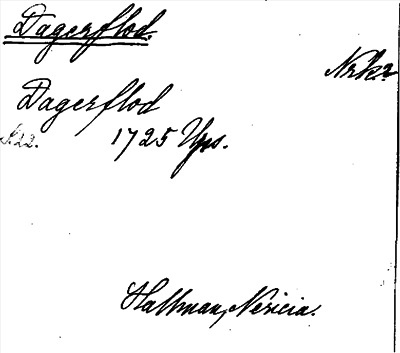 Dagerflod.
Nrk?
Dagerflod
S. 22. 1725 Ups.
Hallman, Nericia.